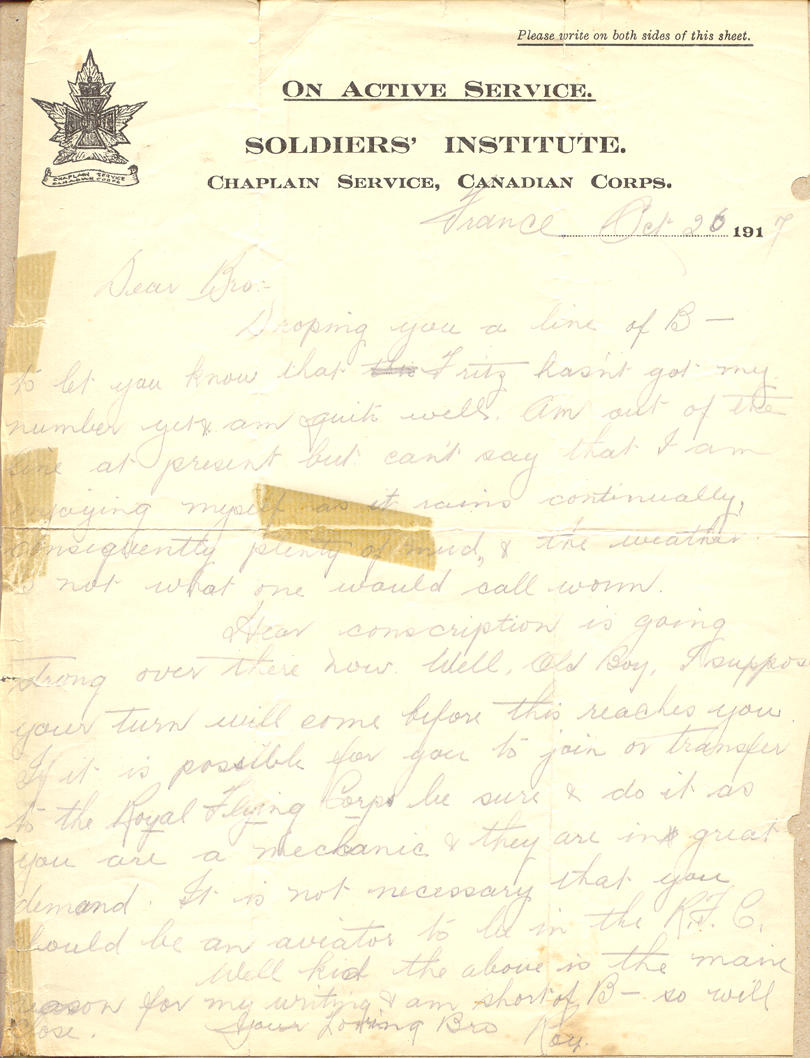 Please write on both sides of this sheet.
ON ACTIVE SERVICE.
SOLDIERS' INSTITUTE.
CHAPLAIN SERVICE, CANADIAN CORPS.
CHAPLAIN SERVICE
CANADIAN CORPS
France, Oct 26 1917
Dear Bro:-
Droping you a line of B—
to let you know that Fritz hasn't got my
number yet & am quite well. Am out of the
line at present but can't say that I am
enjoying myself as it rains continually,
consequently plenty of mud, & the weather
is not what one would call worm.
Hear conscription is going
strong over there now. Well, Old Boy, I suppose
your turn will come before this reaches you.
If it is possible for you to join or transfer
to the Royal Flying Corps be sure & do it as
you are a mechanic & they are in great
demand. It is not necessary that you
should be an aviator to be in the R.F.C.
Well kid the above is the main
reason for my writing & am short of B— so will
close. Your Loving Bro Roy.